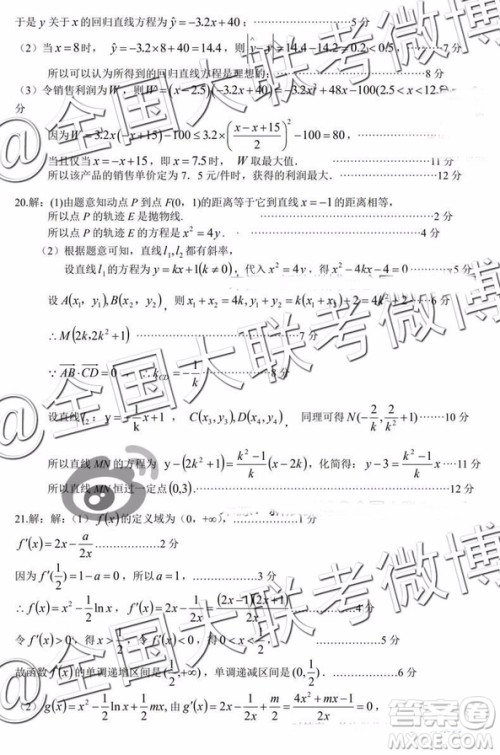 于是 y 关于 x 的回归直线方程为 ŷ=-3.2x+40；…………5 分
（2）当 x=8时， ŷ=-3.2×8+40=14.4，则|ŷ-y|=|14.4-14.2|=0.2<0.5，…………7分
所以可以认为所得到的回归直线方程是理想的；…………8 分
（3）令销售利润为W，则W=(x-2.5)(-3.2x+40)=-3.2x²+48x-100(2.5<x<12.5)
分
因为W=3.2x(-x+15)-100≤3.2×((x-x+15)/2)²-100=80，
当且仅当 x=-x+15，即 x=7.5时， W取最大值．…………11 分
所以该产品的销售单价定为 7．5 元/件时，获得的利润最大．…………12 分
20.解：(1)由题意知动点 P 到点 F(0，1)的距离等于它到直线 x=-1的距离相等，
所以点 P 的轨迹 E 是抛物线．…………2分
所以点 P 的轨迹 E 为 x²=4y．…………4 分
（2）根据题意可知，直线l₁,l₂都有斜率，
设直线l₁的方程为 y=kx+1(k≠0)，代入 x²=4y，得 x²-4kx-4=0……5 分
设 A(x₁，y₁),B(x₂，y₂)，则 x₁+x₂=4k,y₁+y₂=k(x₁+x₂)+2=4k²+2……6分
∴M(2k,2k²+1) …………7 分
∵AB·CD=0 ，∴k_CD=-1/k …………8分
设直线l₂：y=-x/k+1， C(x₃,y₃),D(x₄,y₄)， 同理可得 N(-2/k,2/k²+1)……10 分
所以直线 MN的方程为 y-(2k²+1)=(k²-1)/k(x-2k)，化简得：y-3=(k²-1)/k x…11 分
所以直线 MN恒过一定点(0,3)．…………12 分
21.解：解：（1）f(x)的定义域为（0，+∞），…………1 分
f′(x)=2x-a/2x …………2 分
因为 f′(1/2)=1-a=0，所以 a=1，…………3 分
∴f(x)=x²-1/2 lnx，f′(x)=2x-1/2x=(2x-1)(2x+1)/2x，
令 f′(x)>0，得 x>1/2，令 f′(x)<0，得 0<x<1/2，…………5 分
故函数 f(x)的单调递增区间是(1/2,+∞)，单调递减区间是(0,1/2)．…………6 分
（2）g(x)=x²-1/2 lnx+1/2 mx，由 g′(x)=2x-1/2x+m/2=(4x²+mx-1)/2x=0，
@全国大联考微博
@全国大联考微博
@全国大联考微博
答案圈